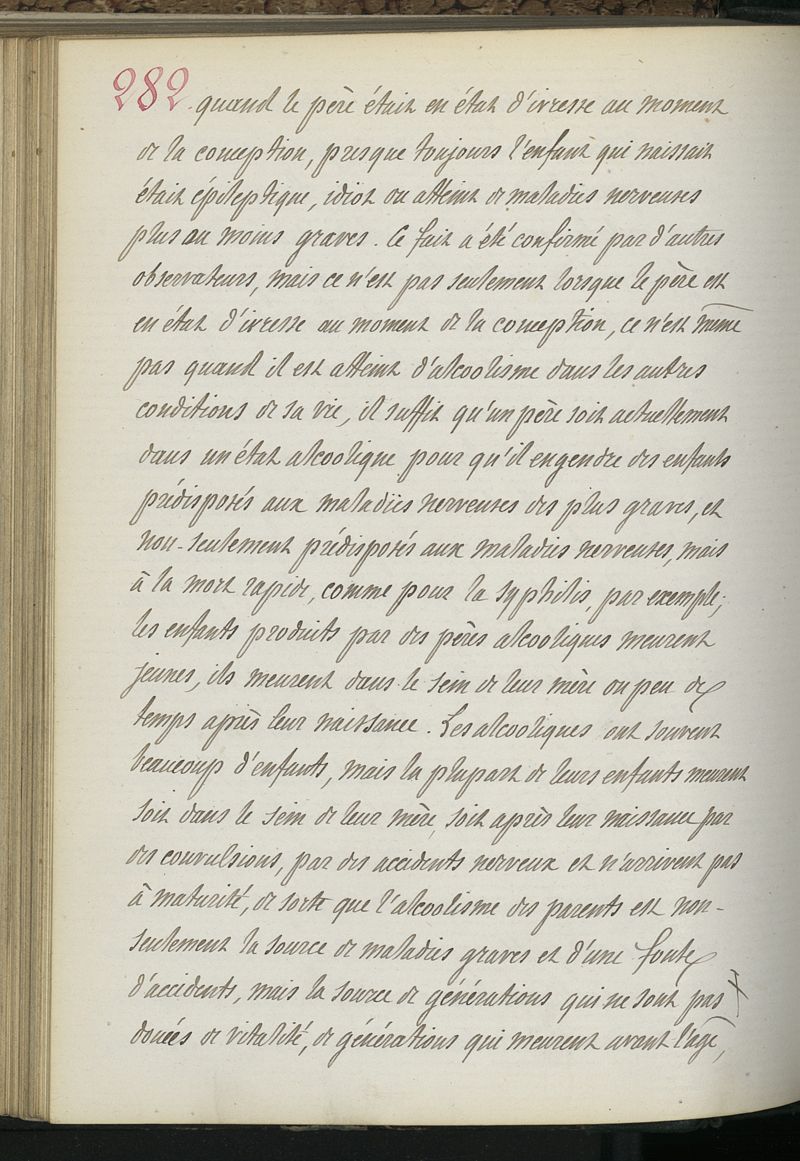 282. quand le père était en état d'ivresse au moment
de la conception, presque toujours l'enfant qui naissait
était épileptique, idiot ou atteint de maladies nerveuses
plus ou moins graves. Ce fait a été confirmé par d'autres
observateurs, mais ce n'est pas seulement lorsque le père est
en état d'ivresse au moment de la conception, ce n'est même
pas quand il est atteint d'alcoolisme dans les autres
conditions de sa vie, il suffit qu'un père soit actuellement
dans un état alcoolique pour qu'il engendre des enfants
prédisposés aux maladies nerveuses des plus graves, et
non-seulement prédisposés aux maladies nerveuses, mais
à la mort rapide, comme pour la syphilis, par exemple;
les enfants produits par des pères alcooliques meurent
jeunes, ils meurent dans le sein de leur mère ou peu de
temps après leur naissance. Les alcooliques ont souvent
beaucoup d'enfants, mais la plupart de leurs enfants meurent
soit dans le sein de leur mère, soit après leur naissance par
des convulsions, par des accidents nerveux et n'arrivent pas
à maturité, de sorte que l'alcoolisme des parents est non-
seulement la source de maladies graves et d'une foule
d'accidents, mais la source de générations qui ne sont pas
douées de vitalité, de générations qui meurent avant l'âge,